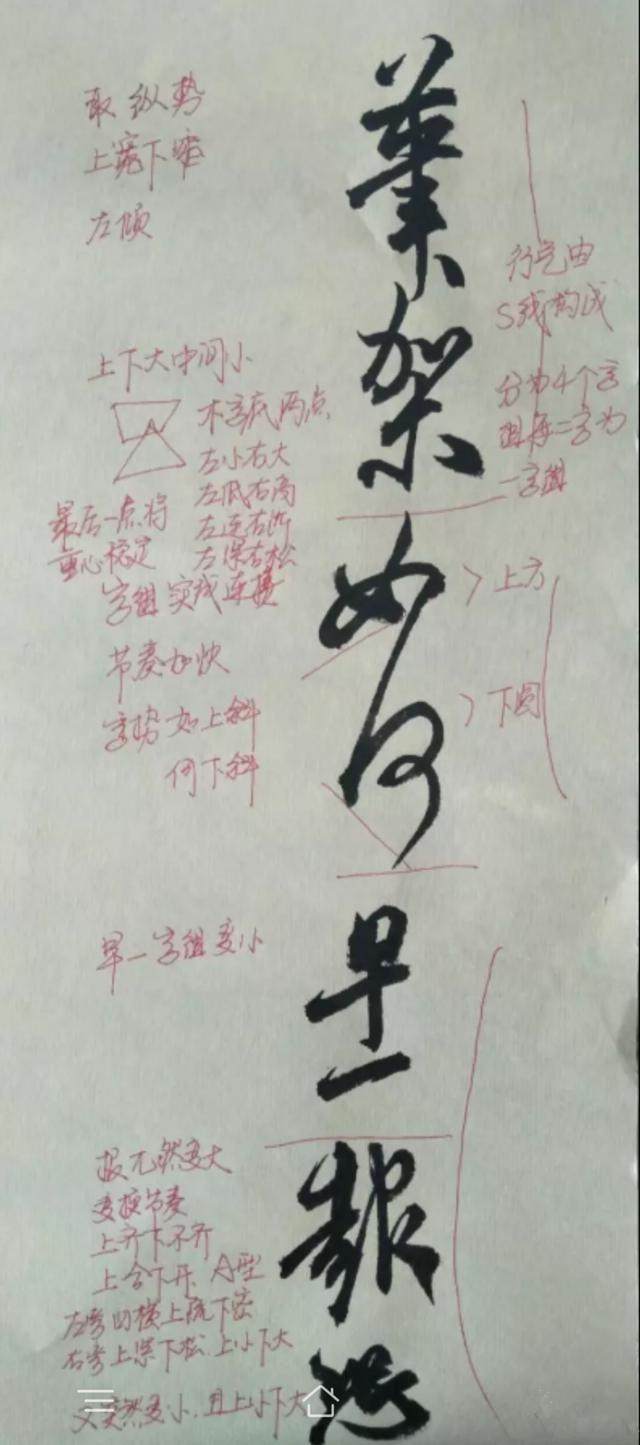 架
如
何
早
一
報
取纵势
上宽下窄
左倾
上下大中间小
木字底两点
左小右大
左低右高
左连右断
最后一点将
重心稳定
字组实线连接
节奏加快
字势如上斜
何下斜
早一字组变小
变换节奏
上齐下不齐
上合下开A型
左旁四横上疏下密
右旁上紧下松上小下大
又突然变小.且上小下大
行气由
S线构成
分为4个字
组每二字为
一字组
上方
下圆